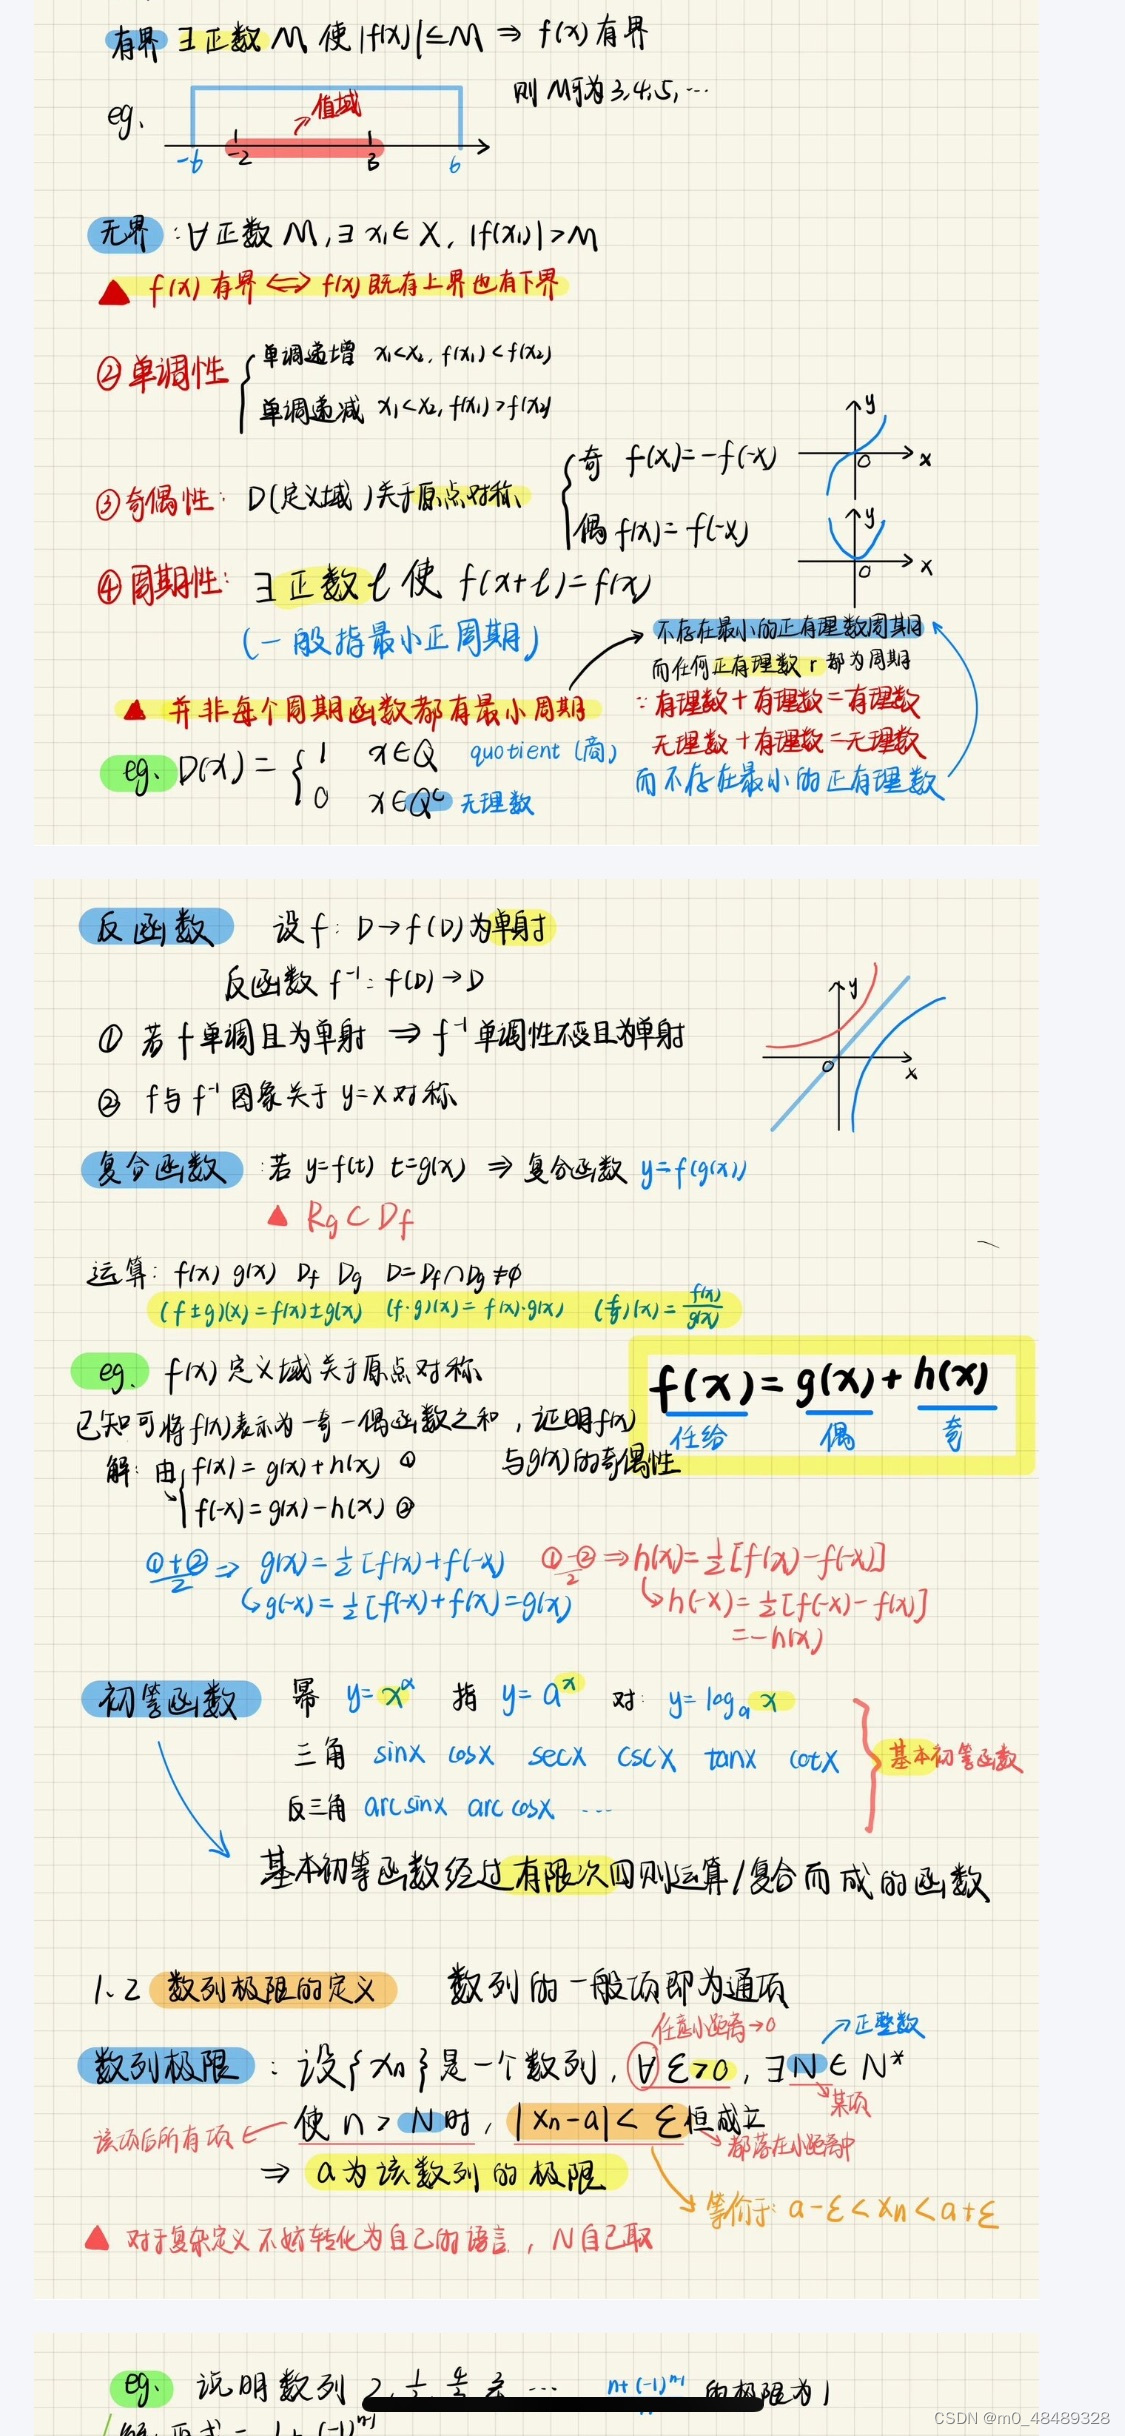 有界 ∃正数 M 使 |f(x)|≤M ⇒ f(x) 有界
则 M可为 3,4,5,…
eg、
值域
-6 -2 3 6
无界：∀正数 M, ∃ x₁∈ X, |f(x₁)|>M
▲ f(x) 有界 ⟺ f(x) 既有上界也有下界
② 单调性
单调递增 x₁<x₂, f(x₁)<f(x₂)
单调递减 x₁<x₂, f(x₁)>f(x₂)
③ 奇偶性： D(定义域)关于原点对称
奇 f(x)=-f(-x)
偶 f(x)=f(-x)
y
O x
y
O x
④ 周期性：∃正数 t 使 f(x+t)=f(x)
(一般指最小正周期)
▲ 并非每个周期函数都有最小周期
不存在最小的正有理数周期
而任何正有理数 r 都为周期
∵有理数+有理数=有理数
无理数+有理数=无理数
而不存在最小的正有理数
eg、D(x)= { 1 x∈Q quotient (商)
0 x∈Qᶜ 无理数
反函数 设 f: D→f(D)为单射
反函数 f⁻¹: f(D)→D
① 若 f 单调且为单射 ⇒ f⁻¹ 单调性不变且为单射
② f与 f⁻¹ 图象关于 y=x对称
y
O x
复合函数：若 y=f(t) t=g(x) ⇒ 复合函数 y=f(g(x))
▲ Rg⊂Df
运算：f(x) g(x) Df Dg D=Df∩Dg≠φ
(f±g)(x)=f(x)±g(x) (f·g)(x)=f(x)·g(x) (f/g)(x)=f(x)/g(x)
eg、f(x)定义域关于原点对称
已知可将f(x)表示为一奇一偶函数之和，证明f(x)
与g(x)的奇偶性
f(x)=g(x)+h(x)
任给 偶 奇
解：由 { f(x)=g(x)+h(x) ①
f(-x)=g(x)-h(x) ②
(①+②)/2 ⇒ g(x)=½[f(x)+f(-x)
↳g(-x)=½[f(-x)+f(x)=g(x)
(①-②)/2 ⇒h(x)=½[f(x)-f(-x)]
↳h(-x)=½[f(-x)-f(x)]
=-h(x)
初等函数 幂 y=xᵅ 指 y=aˣ 对：y=logₐx
三角 sinx cosx secx cscx tanx cotx
反三角 arcsinx arccosx …
基本初等函数
基本初等函数经过有限次四则运算/复合而成的函数
1.2 数列极限的定义 数列的一般项即为通项
任意小距离→0
正整数
数列极限：设{xn}是一个数列, ∀ε>0, ∃N∈N*
某项
使 n>N时, |xn-a|<ε恒成立
该项后所有项
都落在小距离中
⇒ a为该数列的极限
等价于：a-ε<xn<a+ε
▲ 对于复杂定义不妨转化为自己的语言，N自己取
eg、说明数列 2, ½, … n+(-1)ⁿ⁻¹ 的极限为1
CSDN @m0_48489328